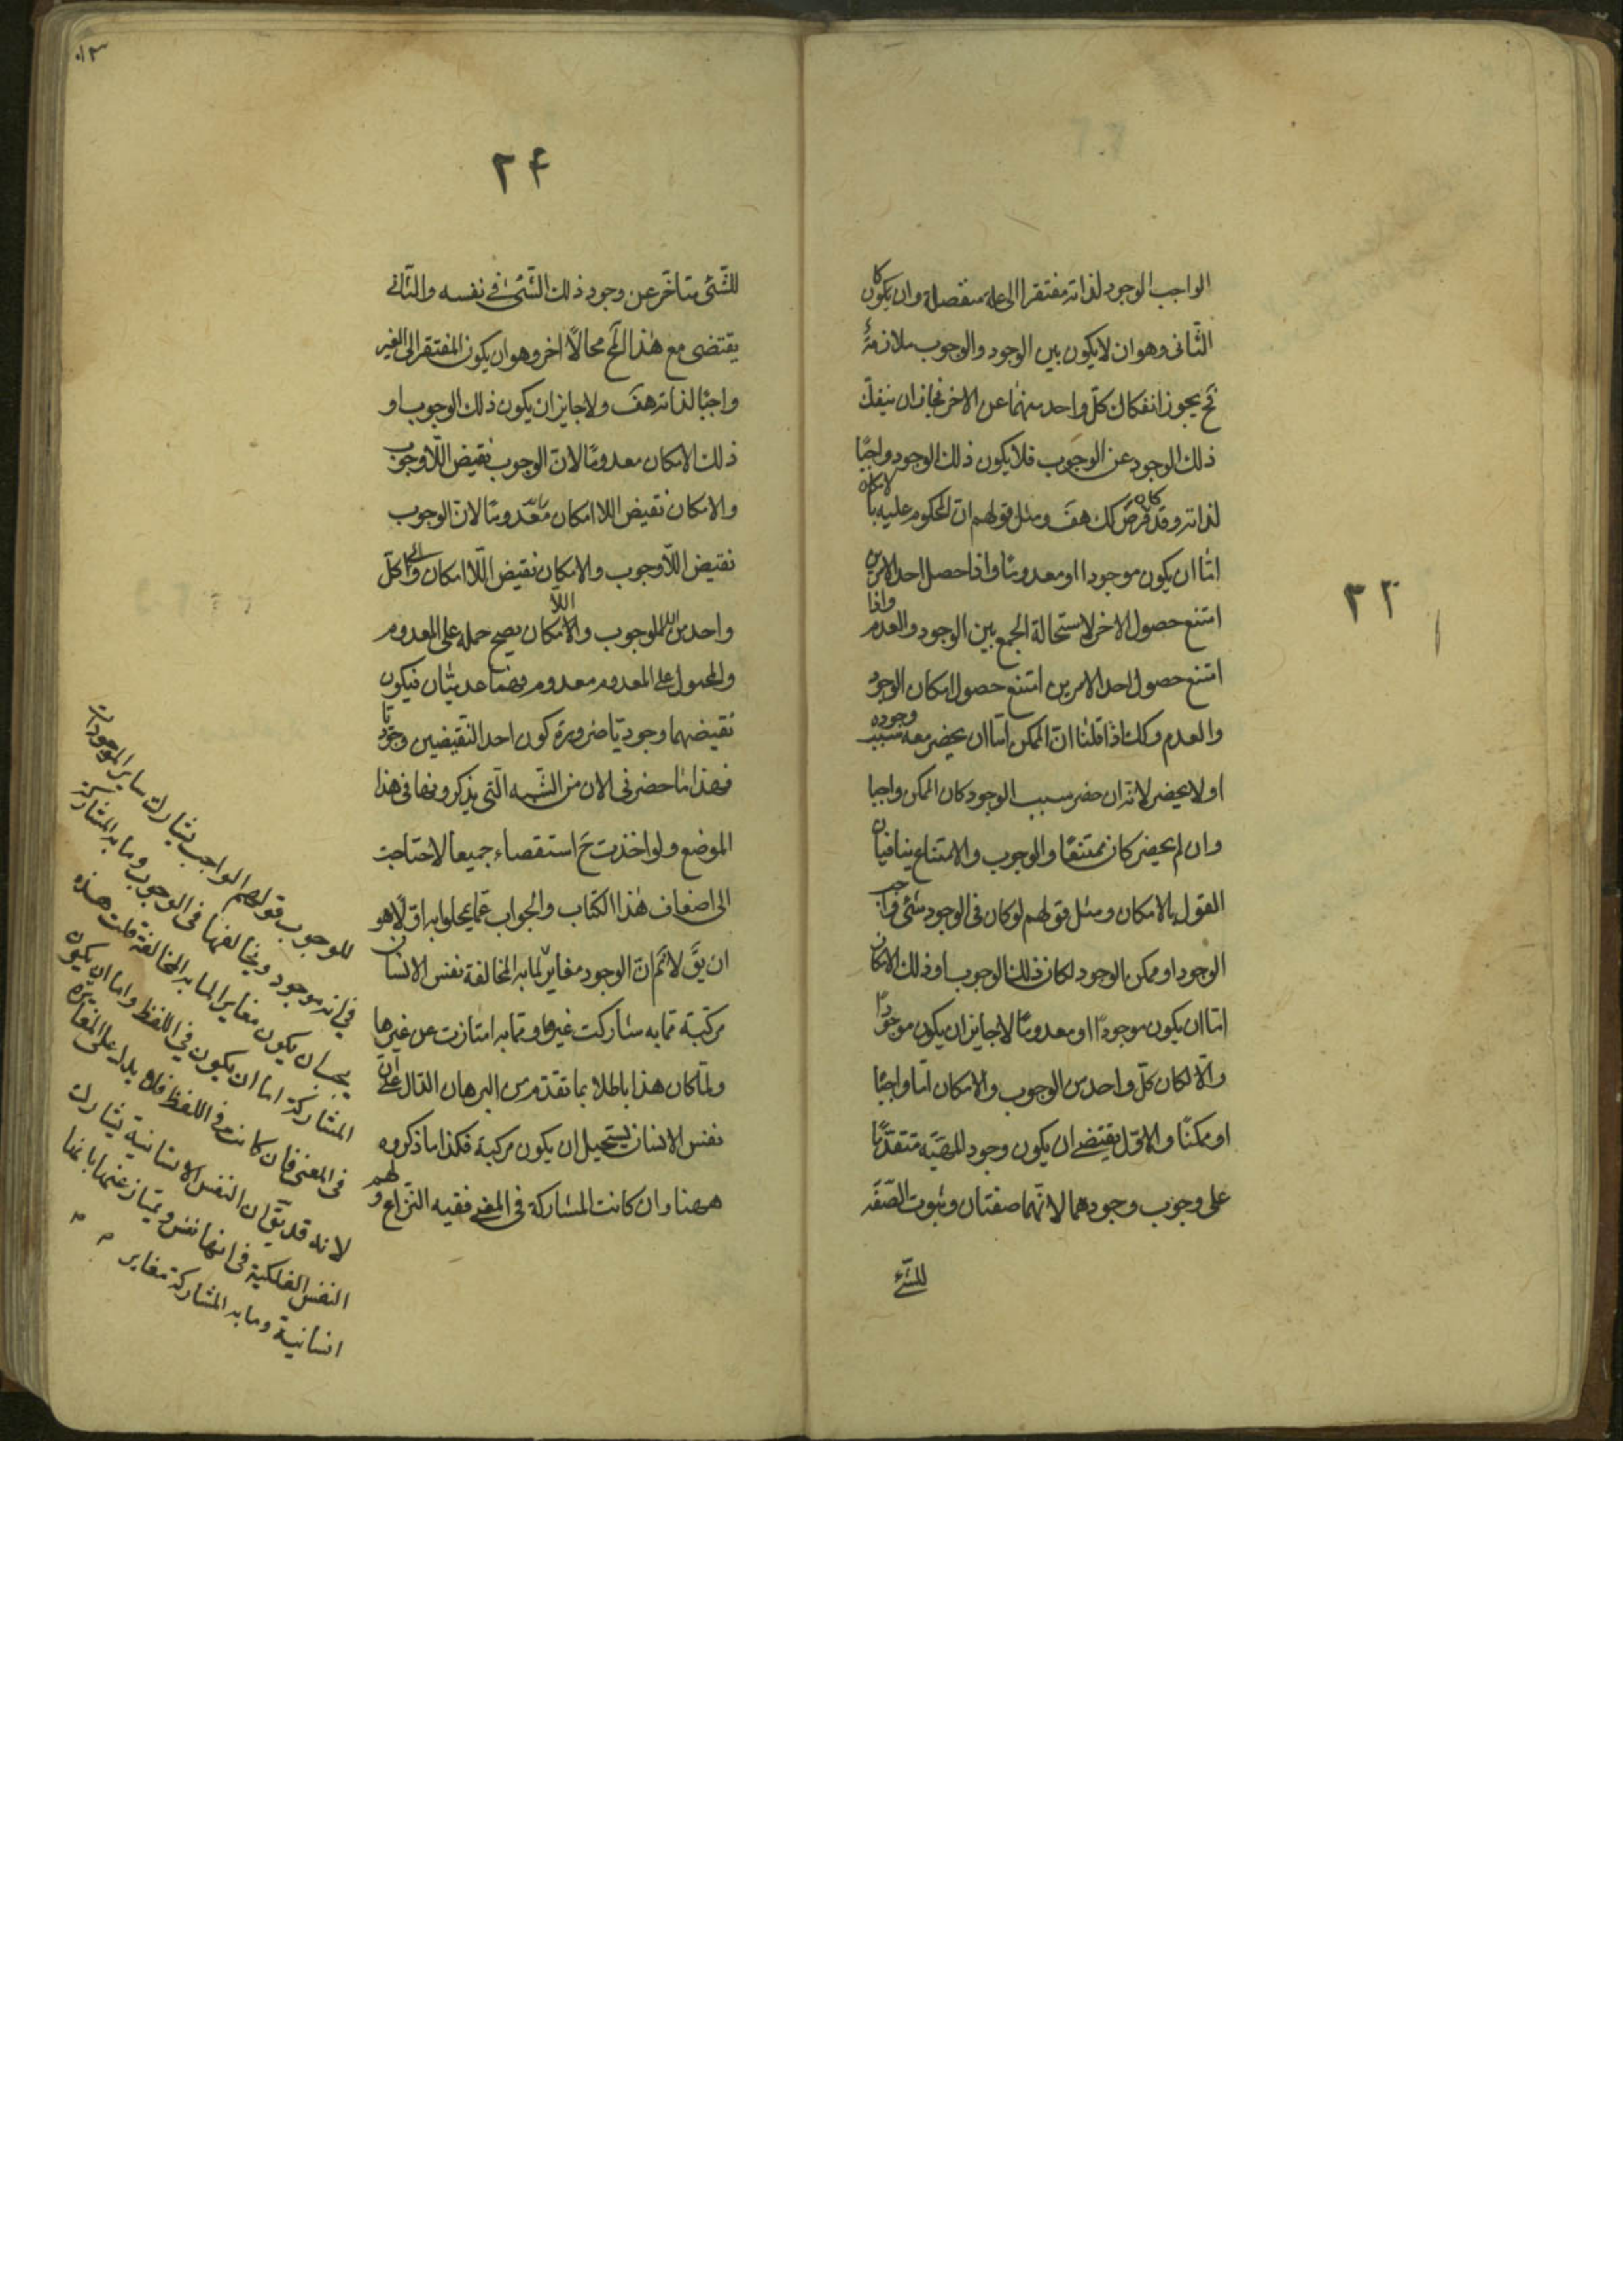 ٢٣
الواجب الوجود لذاته مفتقرا الى علة منفصلة وان كان يكون
الثانى وهو ان لا يكون بين الوجود والوجوب ملازمة
فح يجوز انفكاك كل واحد منهما عن الاخر فجاز ان ينفك
ذلك الوجود عن الوجوب فلا يكون ذلك الوجود واجبًا
لذاته وقد فرض كك هف ومثل قولهم ان المحكوم عليه بالامكان
امّا ان يكون موجودا او معدومًا واذا حصل احد الامرين
امتنع حصول الاخر لاستحالة الجمع بين الوجود والعدم واذا
امتنع حصول احد الامرين امتنع حصول امكان الوجود
والعدم وكك اذا قلنا انّ الممكن امّا ان يحضر معه سبب وجوده
او لا يحضر لانه ان حضر سبب الوجود كان الممكن واجبا
وان لم يحضر كان ممتنعًا والوجوب والامتناع ينافيان
القول بالامكان ومثل قولهم لو كان فى الوجود شئ واجب
الوجود او ممكن الوجود لكان ذلك الوجوب او ذلك الامكان
امّا ان يكون موجودًا او معدومًا لا جايز ان يكون موجودًا
والّا لكان كلّ واحد من الوجوب والامكان امّا واجبًا
او ممكنًا والاوّل يقتضى ان يكون وجود المهيّة متقدّمًا
على وجوب وجودهما لانّهما صفتان وثبوت الصّفه
للشّئ
٢۴
للشّئ متاخّر عن وجود ذلك الشّئ فى نفسه والثّانى
يقتضى مع هذا المح محالًا اخر وهو ان يكون المفتقر الى الغير
واجبًا لذاته هف ولا جايز ان يكون ذلك الوجوب او
ذلك الامكان معدومًا لانّ الوجوب نقيض اللّاوجوب
والامكان نقيض اللا امكان معدومًا لانّ الوجوب
نقيض اللّاوجوب والامكان نقيض اللّا امكان وكلّ
واحد من اللاوجوب واللاامكان يصح حمله على المعدوم
والمحمول على المعدوم معدوم فهما عدميّان فيكون
نقيضهما وجوديّا ضرورة كون احد النّقيضين وجوديّا
فهذا ما حضرنى الان من الشّبه الّتى يذكرونها فى هذا
الموضع ولو اخذت فى استقصاء جميعا لاحتاجت
الى اضعاف هذا الكتاب والجواب عمّا يحلوا به اوّلًا هو
ان يقّ لا نم انّ الوجود مغاير لما به المخالفة نفس الانسان
مركبّة ممّا به شاركت غيرها وممّا به امتازت عن غيرها
ولمّا كان هذا باطلا بما تقدّم من البرهان الدّال على انّ
نفس الانسان يستحيل ان يكون مركبّة فكذا ما ذكروه
ههنا وان كانت المشاركة فى المعنى ففيه النّزاع ولهم
للوجوب قولهم الواجب يشارك ساير الموجودات
في انه موجود ويخالفها فى الوجوب وما به المشاركة
يجب ان يكون مغاير لما به المخالفة قلت هذه
المشاركة اما ان يكون في اللفظ واما ان يكون
فى المعنى فان كانت فى اللفظ فلا يدل على المغايرة
لانه قد يقّ ان النفس الانسانية يشارك
النفس الفلكية فى انها نفس ويمتاز عنها بانها
انسانية وما به المشاركة مغاير